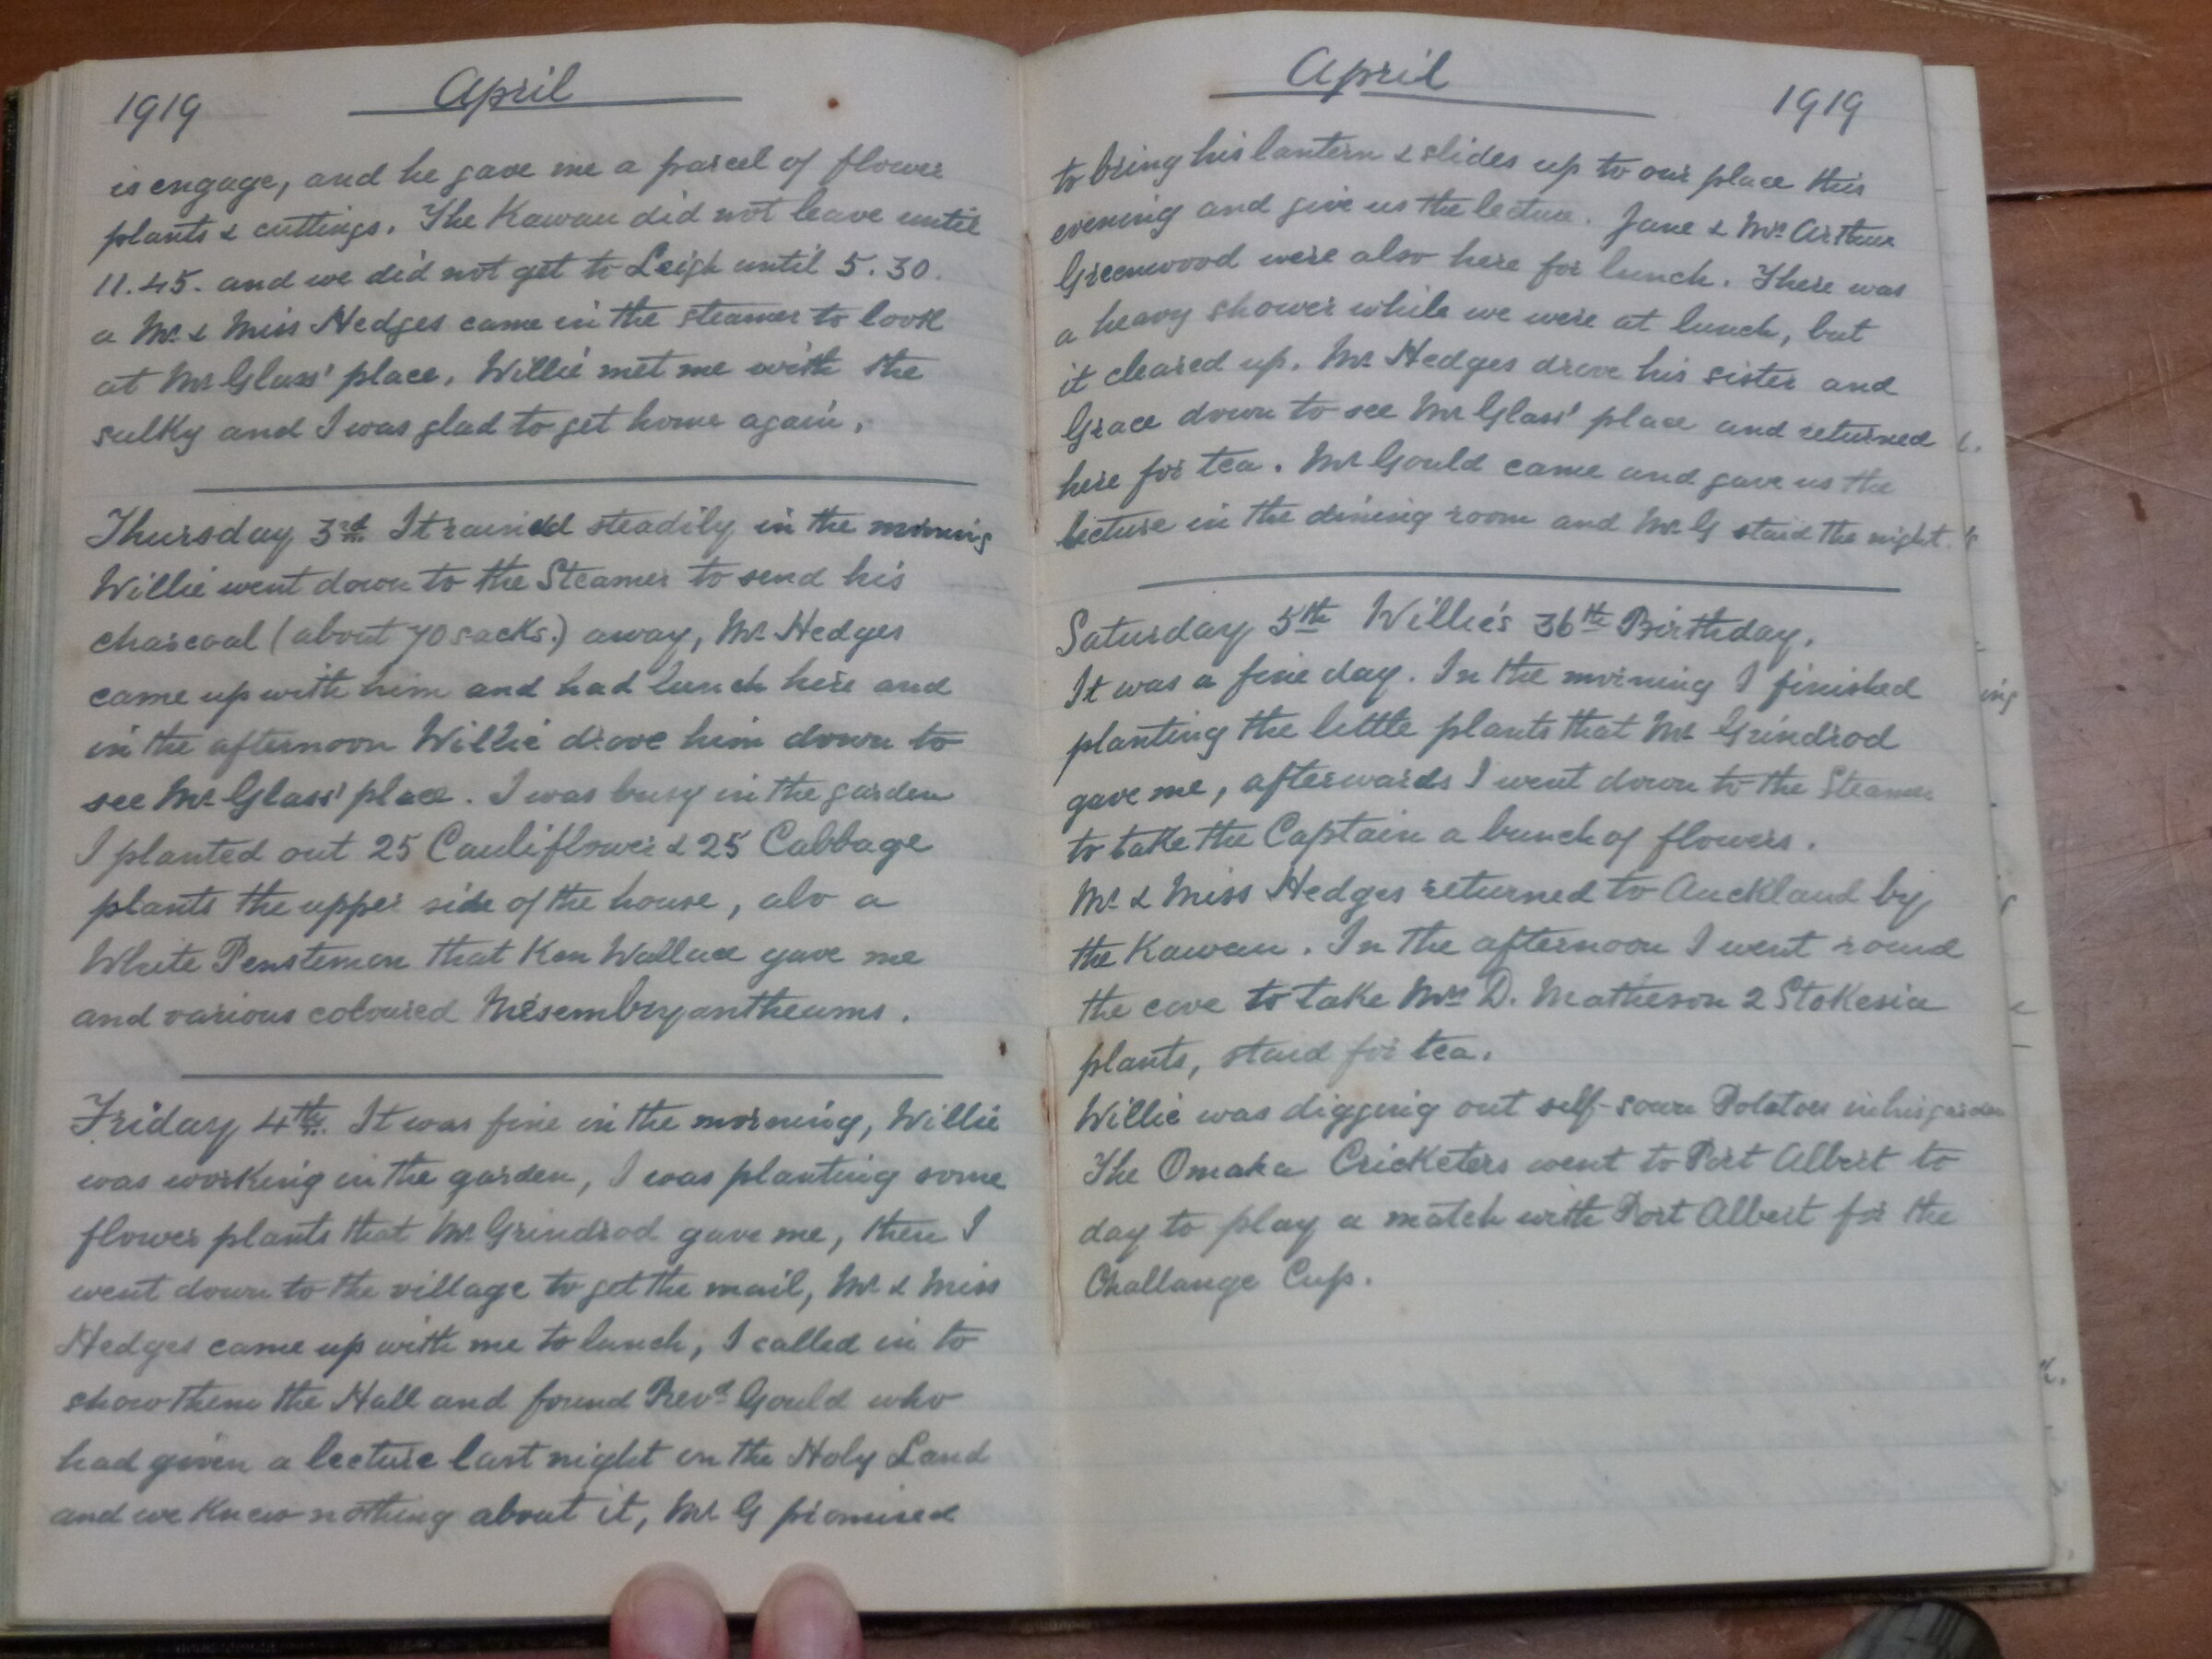 1919 April
is engage, and he gave me a parcel of flower
plants & cuttings. The Kawau did not leave until
11.45. and we did not get to Leigh until 5.30.
a Mr. & Miss Hedges came in the steamer to look
at Mr Glass' place. Willie met me with the
sulky and I was glad to get home again.
Thursday 3rd. It rained steadily in the morning
Willie went down to the Steamer to send his
charcoal (about 70 sacks.) away, Mr. Hedges
came up with him and had lunch here and
in the afternoon Willie drove him down to
see Mr. Glass' place. I was busy in the garden
I planted out 25 Cauliflower & 25 Cabbage
plants the upper side of the house, also a
White Penstemon that Ken Wallace gave me
and various coloured Mesembryantheums.
Friday 4th. It was fine in the morning, Willie
was working in the garden, I was planting some
flower plants that Mr. Grindrod gave me, then I
went down to the village to get the mail, Mr. & Miss
Hedges came up with me to lunch, I called in to
show them the Hall and found Revd. Gould who
had given a lecture last night on the Holy Land
and we knew nothing about it, Mr G promised
April 1919
to bring his lantern & slides up to our place this
evening and give us the lecture. Jane & Mrs Arthur
Greenwood were also here for lunch. There was
a heavy shower while we were at lunch, but
it cleared up. Mr. Hedges drove his sister and
Grace down to see Mr Glass' place and returned
here for tea. Mr Gould came and gave us the
lecture in the dining room and Mr. G staid the night.
Saturday 5th Willie's 36th Birthday.
It was a fine day. In the morning I finished
planting the little plants that Mr. Grindrod
gave me, afterwards I went down to the Steamer
to take the Captain a bunch of flowers.
Mr. & Miss Hedges returned to Auckland by
the Kawau. In the afternoon I went round
the cove to take Mrs D. Matheson 2 Stokesia
plants, staid for tea.
Willie was digging out self-sown Potatoes in his garden
The Omaha Cricketers went to Port Albert to
day to play a match with Port Albert for the
Challange Cup.